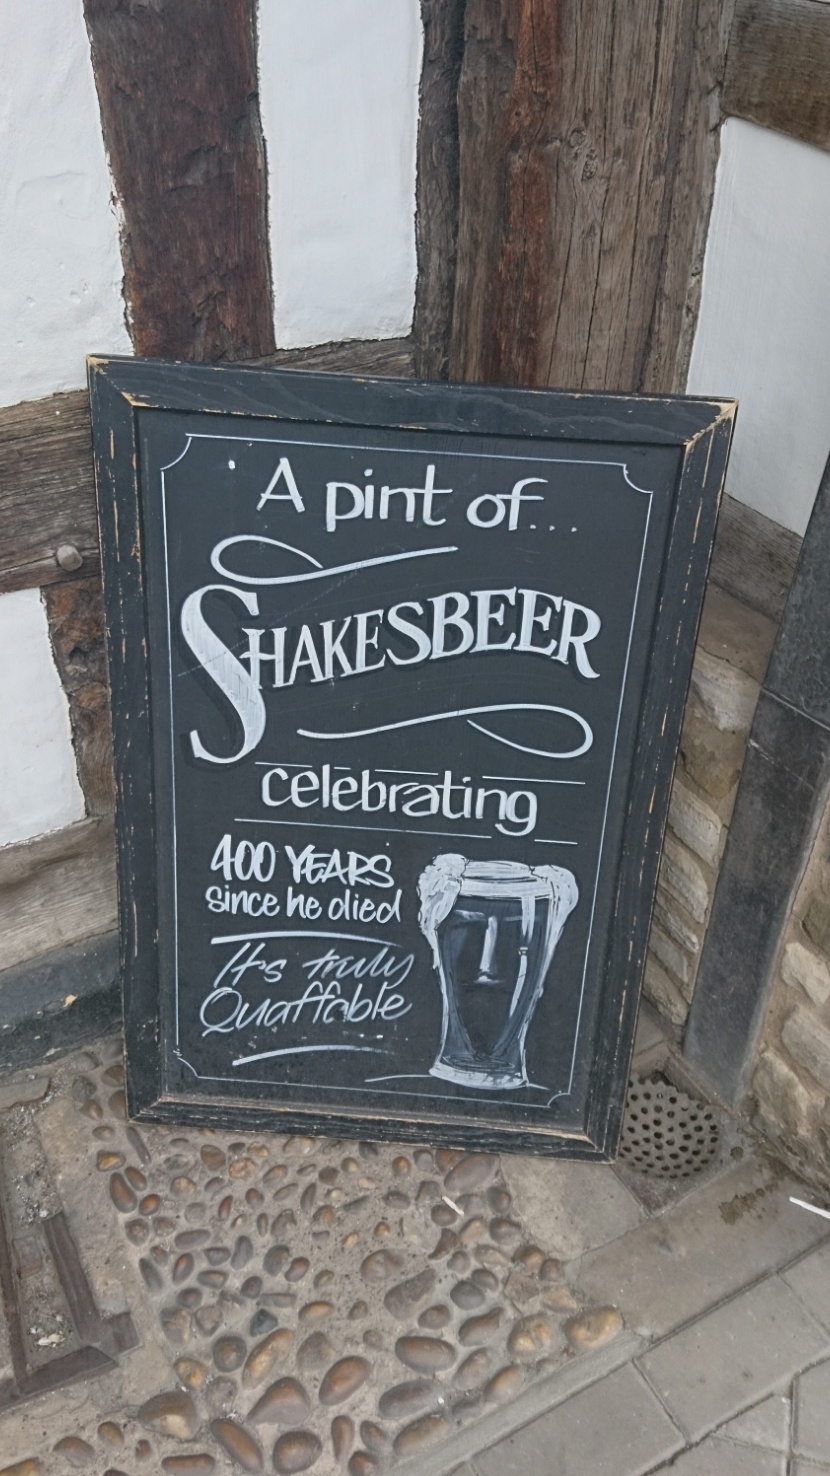 A pint of...
SHAKESBEER
celebrating
400 YEARS
since he died
It's truly
Quaffable